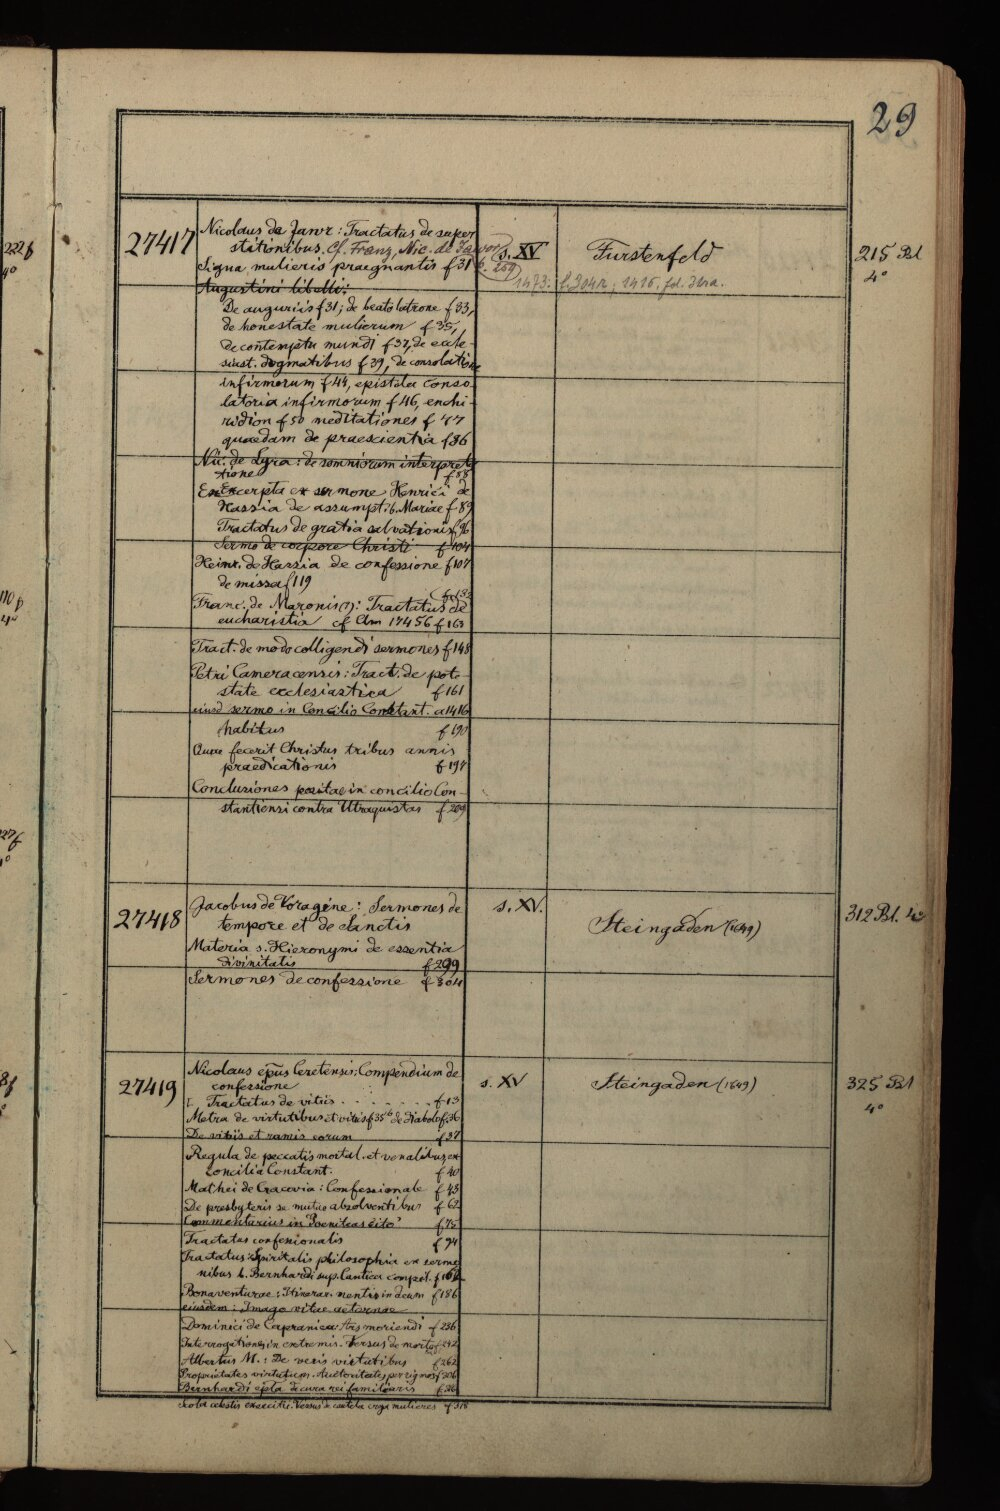 29
27417
Nicolaus de Jawr: Tractatus de super
stitionibus. Cf. Franz, Nic. de Jawor
s. XV
Fürstenfeld
215 Bl
4°
Signa mulieris praegnantis f 31
259
1473: f. 204r; 1416, fol.
Augustini libelli:
De auguriis f 31; de beato latrone f 33,
de honestate mulierum f 35,
de contemptu mundi f 37, de eccle-
siast. dogmatibus f 39, de consolatione
infirmorum f 44, epistola conso-
latoria infirmorum f 46, enchi-
ridion f 50 meditationes f 77
quaedam de praescientia f 86
Nic. de Lyra: de somniorum interpreta
tione f 88
Excerpta ex sermone Henrici de
Hassia de assumpt. b. Mariae f 89
Tractatus de gratia salvationis f 96
Sermo de corpore Christi f 104
Heinr. de Hassia de confessione f 107
de missa f 119
Franc. de Maronis (?): Tractatus de
eucharistia cf Clm 17456 f 163
Tract. de modo colligendi sermones f 148
Petri Cameracensis: Tract. de pote-
state ecclesiastica f 161
eiusd sermo in Concilio Constant. a 1416
habitus f 190
Quae fecerit Christus tribus annis
praedicationis f 197
Conclusiones positae in concilio Con-
stantiensi contra Utraquistas f 209
27418
Jacobus de Voragine: Sermones de
tempore et de Sanctis
s. XV.
Steingaden (1649)
312 Bl. 4°
Materia s. Hieronymi de essentia
divinitatis f 299
Sermones de confessione f 304
27419
Nicolaus epūs Ceretensis: Compendium de
confessione
s. XV
Steingaden (1649)
325 Bl
4°
Tractatus de vitiis . . . . . . . f 13
Metra de virtutibus et vitiis f 35b de diabolo f 36
De vitiis et ramis eorum f 37
Regula de peccatis mortal. et venalibus ex
concilia Constant. f 40
Mathei de Cracovia: Confessionale f 43
De presbyteris se mutuo absolventibus f 62
Commentarius in "Poeniteas cito" f 75
Tractatus confessionalis f 94
Tractatus: Spiritalis philosophia ex sermo
nibus b. Bernhardi sup. Cantica compil. f 162
Bonaventurae: Itinerar. mentis in deum f 186
eiusdem: Imago vitae aeternae
Dominici de Capranica: Ars moriendi f 236
Interrogationes in extremis. Versus de morte f 242
Albertus M.: De veris virtutibus f 262
Proprietates virtutum. Auctoritates per signos f 306
Bernhardi epta de cura rei familiaris
Versus de cautela erga mulieres f 318